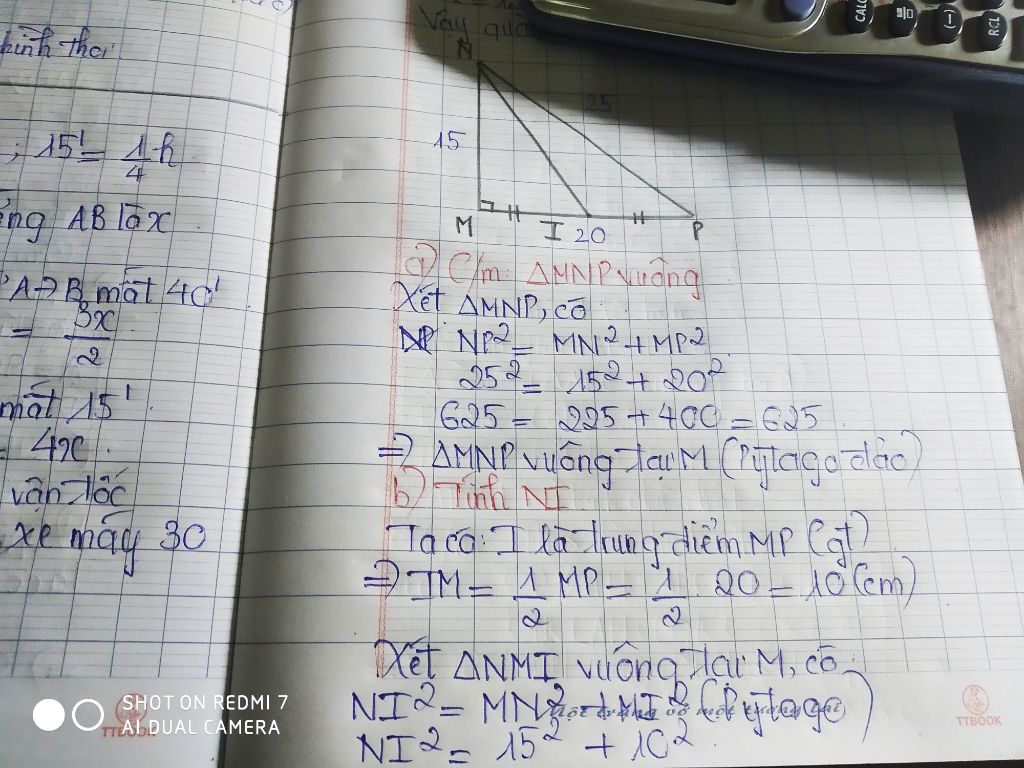 hình thoi
; 15' = 1/4 h
AB là x
A→B mất 40'
= 3x/2
mất 15'
= 4x.
vận tốc
xe máy 30
Vậy
N
25
15
M I 20 P
a) C/m: ΔMNP vuông
Xét ΔMNP, có
NP² = MN² + MP²
25² = 15² + 20²
625 = 225 + 400 = 625
=> ΔMNP vuông tại M (Pytago đảo)
b) Tính NI
Ta có: I là trung điểm MP (gt)
=> IM = 1/2 MP = 1/2 . 20 = 10 (cm)
Xét ΔNMI vuông tại M, có
NI² = MN² + MI² (Pytago)
NI² = 15² + 10²
CALC
RCL
(-)
SHOT ON REDMI 7
AI DUAL CAMERA
TTBOOK